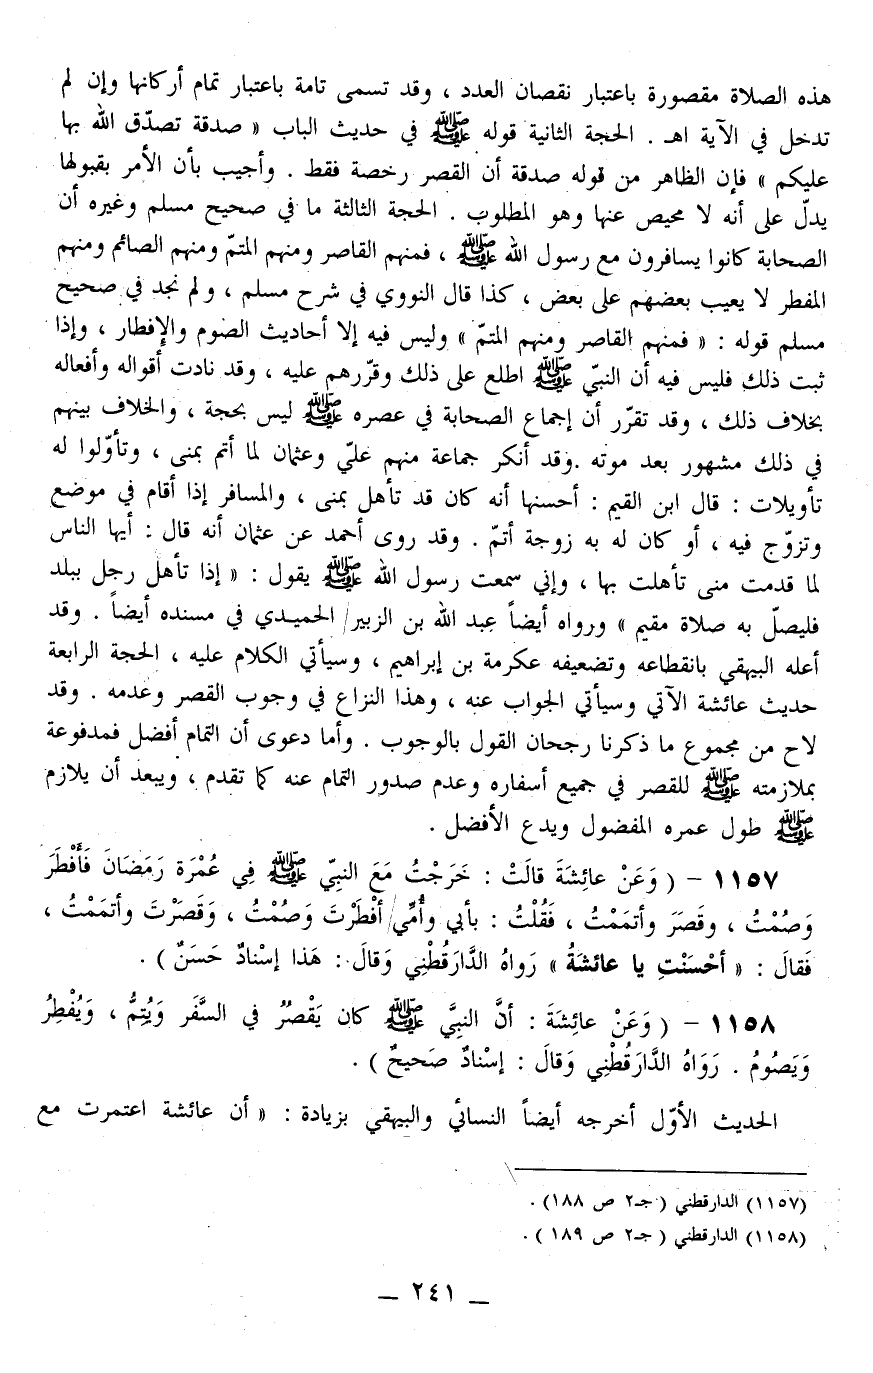 هذه الصلاة مقصورة باعتبار نقصان العدد ، وقد تسمى تامة باعتبار تمام أركانها وإن لم
تدخل في الآية اهـ . الحجة الثانية قوله ﷺ في حديث الباب « صدقة تصدّق الله بها
عليكم » فإن الظاهر من قوله صدقة أن القصر رخصة فقط . وأجيب بأن الأمر بقبولها
يدلّ على أنه لا محيص عنها وهو المطلوب . الحجة الثالثة ما في صحيح مسلم وغيره أن
الصحابة كانوا يسافرون مع رسول الله ﷺ ، فمنهم القاصر ومنهم المتمّ ومنهم الصائم ومنهم
المفطر لا يعيب بعضهم على بعض ، كذا قال النووي في شرح مسلم ، ولم نجد في صحيح
مسلم قوله : « فمنهم القاصر ومنهم المتمّ » وليس فيه إلا أحاديث الصوم والإفطار ، وإذا
ثبت ذلك فليس فيه أن النبيّ ﷺ اطلع على ذلك وقرّرهم عليه ، وقد نادت أقواله وأفعاله
بخلاف ذلك ، وقد تقرّر أن إجماع الصحابة في عصره ﷺ ليس بحجة ، والخلاف بينهم
في ذلك مشهور بعد موته .وقد أنكر جماعة منهم عليّ وعثمان لما أتم بمنى ، وتأوّلوا له
تأويلات : قال ابن القيم : أحسنها أنه كان قد تأهل بمنى ، والمسافر إذا أقام في موضع
وتزوّج فيه ، أو كان له به زوجة أتمّ . وقد روى أحمد عن عثمان أنه قال : أيها الناس
لما قدمت منى تأهلت بها ، وإني سمعت رسول الله ﷺ يقول : « إذا تأهل رجل ببلد
فليصلّ به صلاة مقيم » ورواه أيضاً عبد الله بن الزبير/ الحميدي في مسنده أيضاً . وقد
أعله البيهقي بانقطاعه وتضعيفه عكرمة بن إبراهيم ، وسيأتي الكلام عليه ، الحجة الرابعة
حديث عائشة الآتي وسيأتي الجواب عنه ، وهذا النزاع في وجوب القصر وعدمه . وقد
لاح من مجموع ما ذكرنا رجحان القول بالوجوب . وأما دعوى أن التمام أفضل فمدفوعة
بملازمته ﷺ للقصر في جميع أسفاره وعدم صدور التمام عنه كما تقدم ، ويبعد أن يلازم
ﷺ طول عمره المفضول ويدع الأفضل .
١١٥٧ – ( وَعَنْ عائِشَةَ قالَتْ : خَرَجْتُ مَعَ النبيّ ﷺ فِي عُمْرَة رَمَضَانَ فَأَفْطَرَ
وَصُمْتُ ، وقَصَرَ وأتمَمْتُ ، فَقُلْتُ : بأبي وأُمِّي/ أفْطَرْتَ وَصُمْتُ ، وَقَصَرْتَ وأتممْتُ ،
فَقالَ : « أحْسَنْتِ يا عائشَةُ » رَواهُ الدَّارَقُطْنِي وَقالَ : هَذا إسْنادٌ حَسَنٌ ) .
١١٥٨ – ( وَعَنْ عائِشَةَ : أنَّ النبِيَّ ﷺ كان يَقْصُرُ في السَّفَر وَيُتِمُّ ، وَيُفْطِرُ
وَيَصُومُ . رَوَاهُ الدَّارَقُطْنِي وَقالَ : إسْنادٌ صَحيحٌ ) .
الحديث الأوّل أخرجه أيضاً النسائي والبيهقي بزيادة : « أن عائشة اعتمرت مع
(١١٥٧) الدارقطني ( جـ٢ ص ١٨٨) .
(١١٥٨) الدارقطني ( جـ٢ ص ١٨٩ ) .
– ٢٤١ –